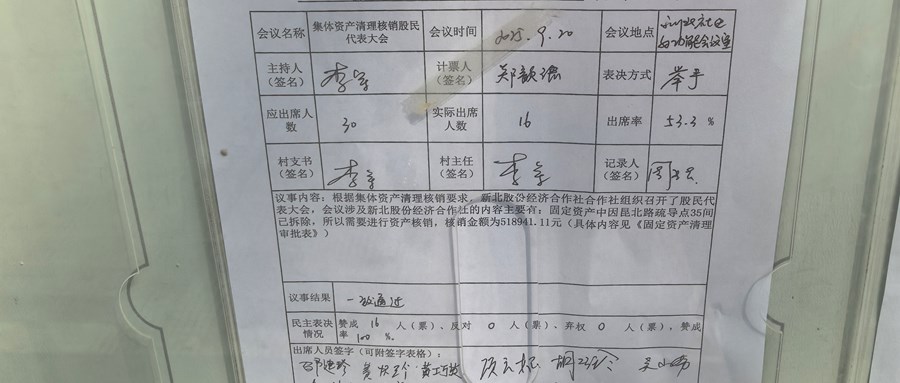 会议名称 集体资产清理核销股民代表大会 会议时间 2025.9.20 会议地点
主持人(签名) 李 计票人(签名) 郑 表决方式 举手
应出席人数 30 实际出席人数 16 出席率 53.3 %
村支书(签名) 李 村主任(签名) 李 记录人(签名) 周
议事内容:根据集体资产清理核销要求,新北股份经济合作社合作社组织召开了股民代
表大会,会议涉及新北股份经济合作社的内容主要有:固定资产中因昆北路疏导点35间
已拆除,所以需要进行资产核销,核销金额为518941.11元(具体内容见《固定资产清理
审批表》)
议事结果 一致通过
民主表决情况 赞成 16 人(票)、反对 0 人(票)、弃权 0 人(票),赞成
率 100 %.
出席人员签字(可附签字表格):